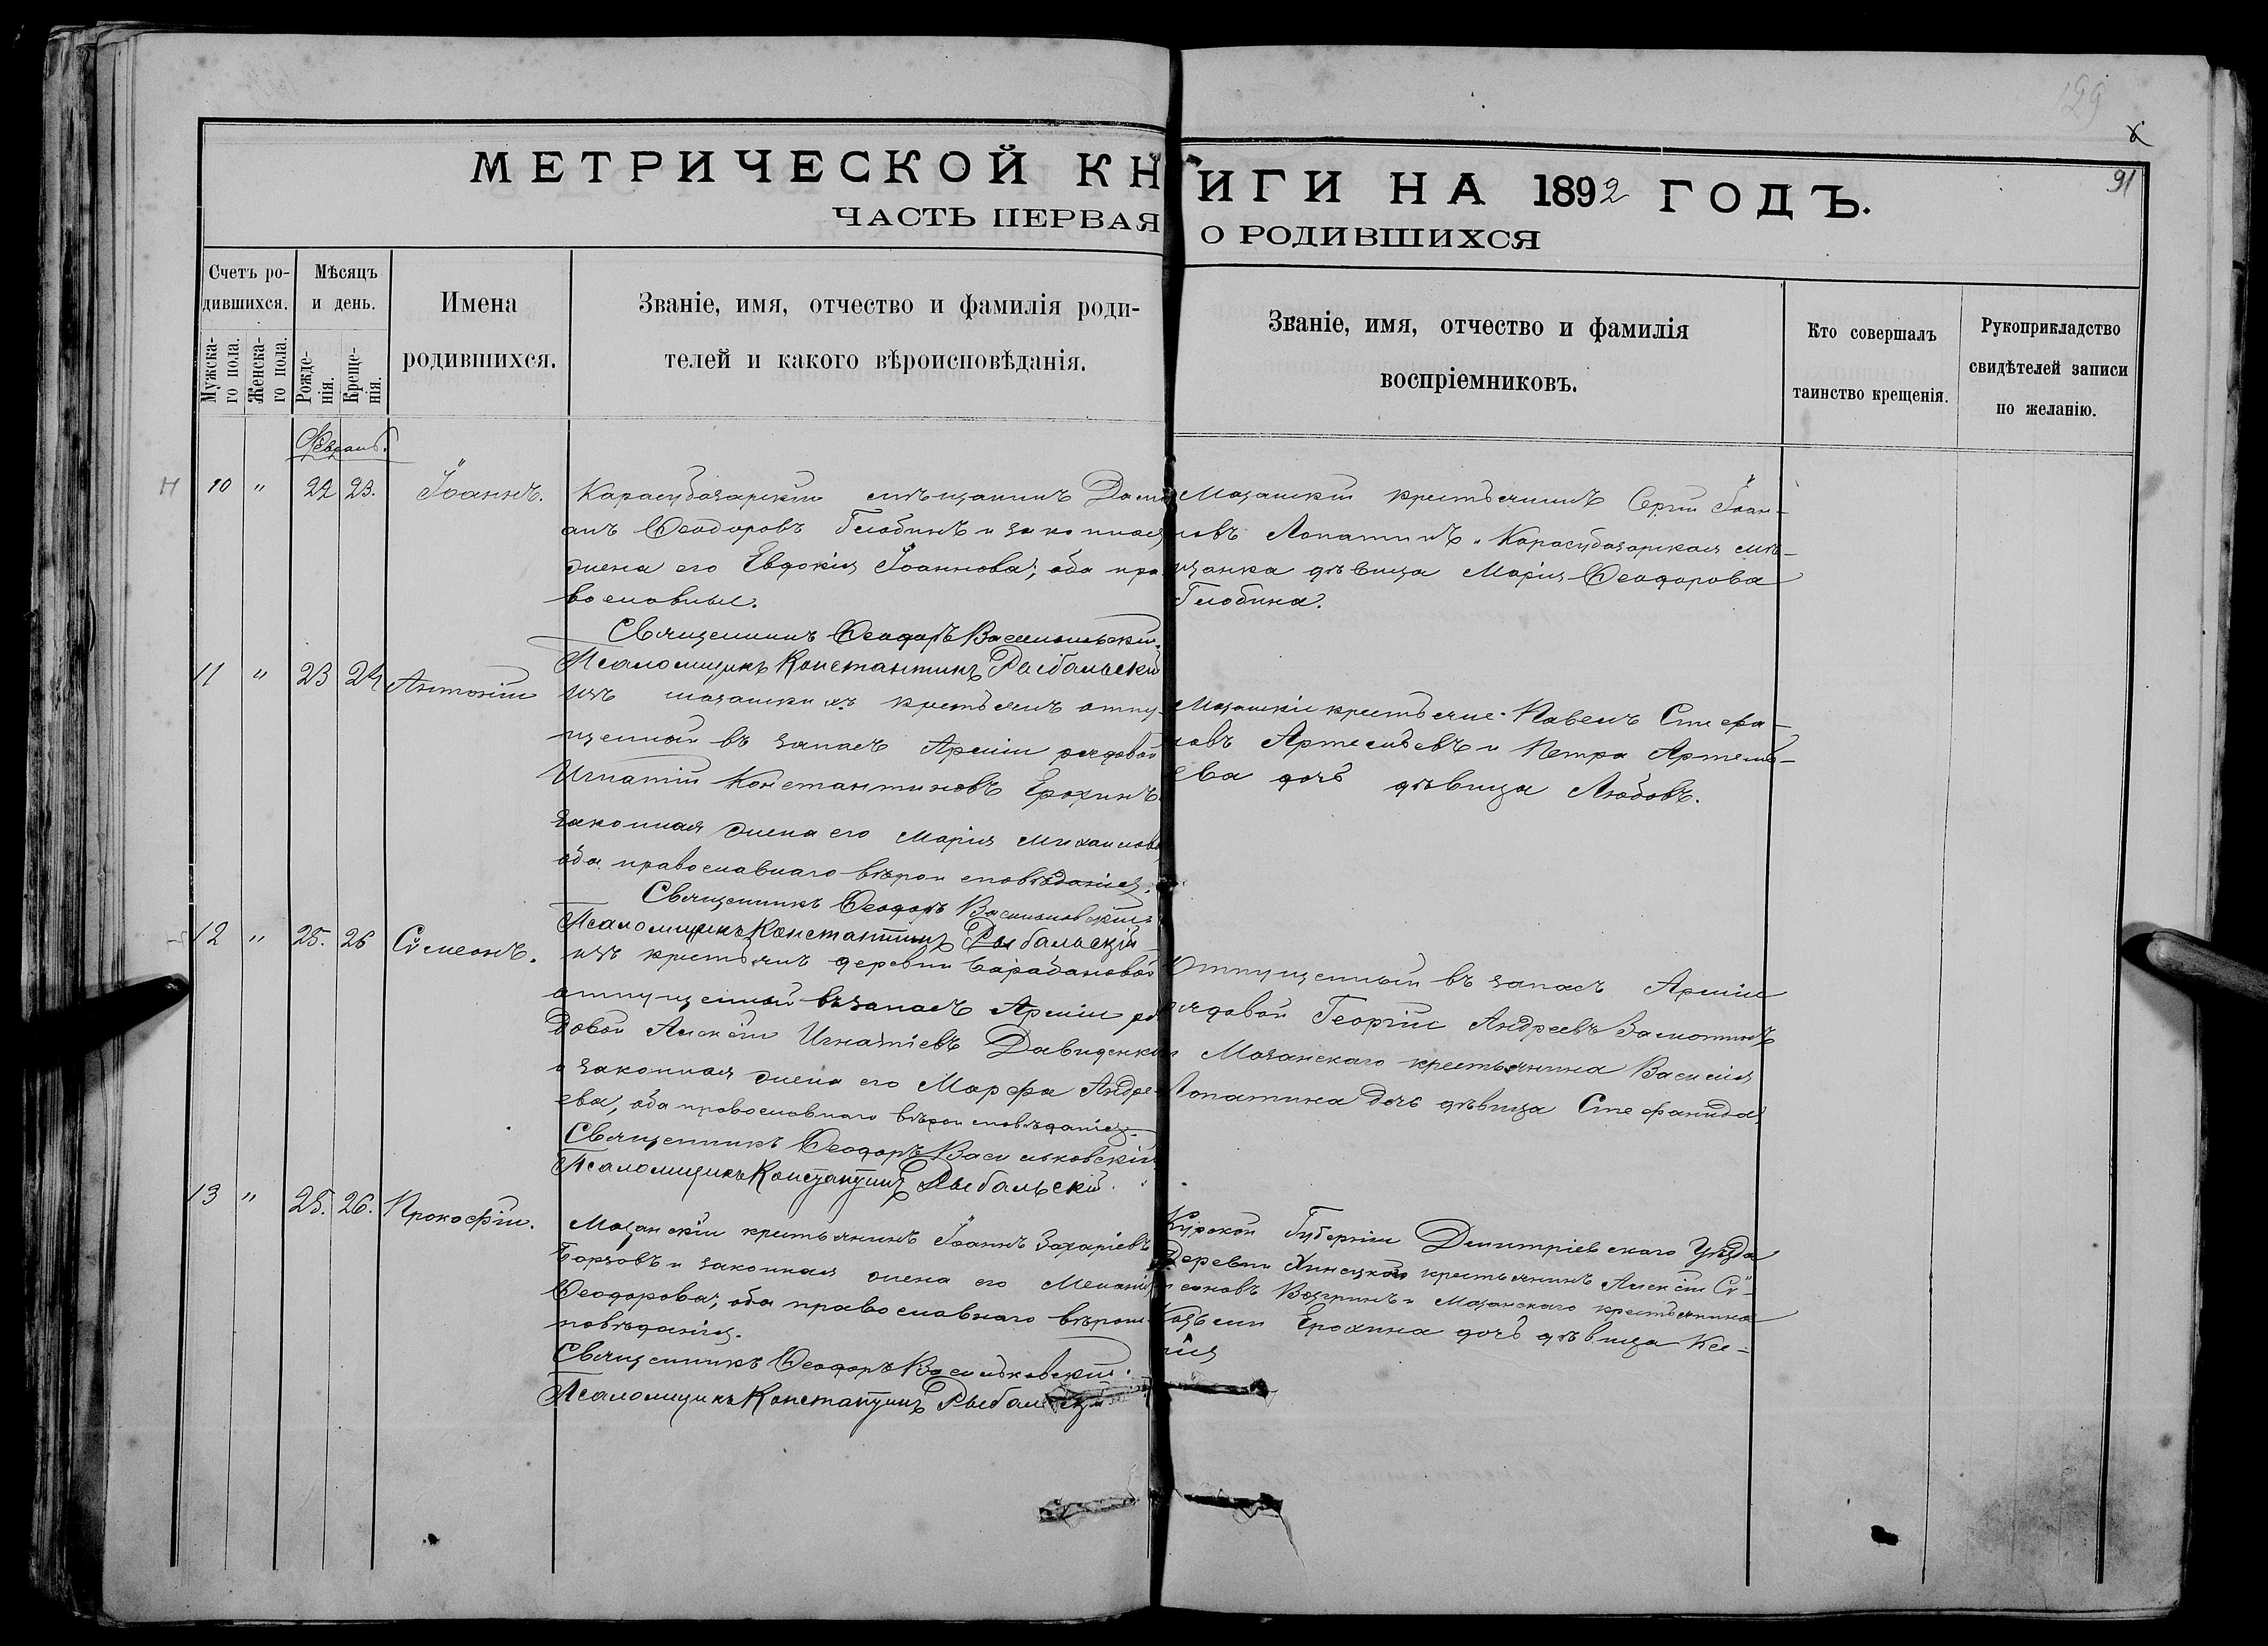 199
91
МЕТРИЧЕСКОЙ КНИГИ НА 1892 ГОДЪ.
ЧАСТЬ ПЕРВАЯ О РОДИВШИХСЯ
Счетъ ро-
дившихся.
Мужска-
го пола.
Женска-
го пола.
Мѣсяцъ
и день.
Рожде-
нія.
Креще-
нія.
Имена
родившихся.
Званіе, имя, отчество и фамилія роди-
телей и какого вѣроисповѣданія.
Званіе, имя, отчество и фамилія
воспріемниковъ.
Кто совершалъ
таинство крещенія.
Рукоприкладство
свидѣтелей записи
по желанію.
Февраль.
Н 10 " 22 23. Іоаннъ.
Карасубазарскій мѣщанинъ Дамі
анъ Ѳеодоровъ Глобинъ и законная
жена его Евдокія Іоаннова, оба пра
вославные.
Священникъ Ѳеодоръ Васильковскій.
Псаломщикъ Константинъ Рыбальскій
Мазанскій крестьянинъ Сергій Іоан-
новъ Лопатинъ и Карасубазарская мѣ-
щанка дѣвица Марія Ѳеодорова
Глобина.
11 " 23 24 Антоній
изъ мазанскихъ крестьянъ отпу-
щенный въ запасъ Арміи рядовой
Игнатій Константиновъ Ерохинъ
законная жена его Марія Михаилова
оба православнаго вѣроисповѣданія.
Священникъ Ѳеодоръ Васильковскій
Псаломщикъ Константинъ Рыбальскій
Мазанскіе крестьяне Павелъ Стефа-
новъ Артемьевъ и Петра Артемь-
ева дочь дѣвица Любовь.
12 " 25. 26 Сѵмеонъ.
изъ крестьянъ деревни Барабановой
отпущенный въ запасъ Арміи ря
довой Алексій Игнатіевъ Давиденко
и законная жена его Марфа Андре-
ева, оба православнаго вѣроисповѣданія.
Священникъ Ѳеодоръ Васильковскій
Псаломщикъ Константинъ Рыбальскій.
Отпущенный въ запасъ Арміи
рядовой Георгій Андреевъ Замотинъ
и Мазанскаго крестьянина Василія
Лопатина дочь дѣвица Стефанида.
13 " 25. 26. Прокофій.
Мазанскій крестьянинъ Іоаннъ Захаріевъ
Борзовъ и законная жена его Меланія
Ѳеодорова, оба православнаго вѣроис
повѣданія.
Священникъ Ѳеодоръ Васильковскій.
Псаломщикъ Константинъ Рыбальскій
Курской Губерніи Димитріевскаго Уѣзда
Деревни крестьянинъ Алексій Сѵ-
меоновъ и Мазанскаго крестьянина
Козьмы Ерохина дочь дѣвица Ксе-
нія